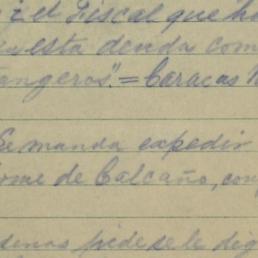 el Fiscal que ha
esta deuda com
tangeros". = Caracas
Se manda expedir
forme de Calcaño, con
senas pide se le dig